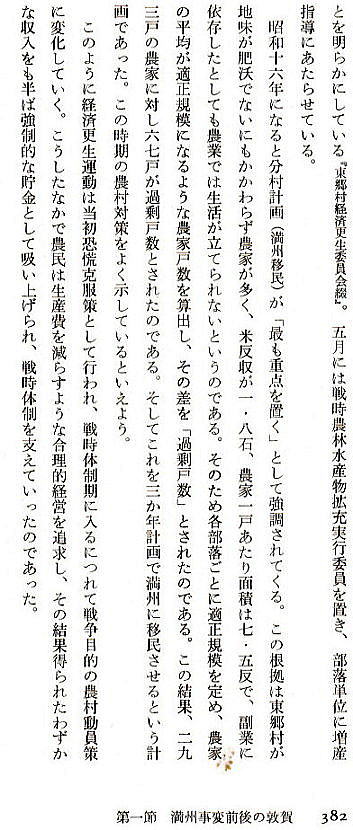 とを明らかにしている『東郷村経済更生委員会綴』。五月には戦時農林水産物拡充実行委員を置き、部落単位に増産
指導にあたらせている。
昭和十六年になると分村計画（満州移民）が「最も重点を置く」として強調されてくる。この根拠は東郷村が
地味が肥沃でないにもかかわらず農家が多く、米反収が一・八石、農家一戸あたり面積は七・五反で、副業に
依存したとしても農業では生活が立てられないというのである。そのため各部落ごとに適正規模を定め、農家
の平均が適正規模になるような農家戸数を算出し、その差を「過剰戸数」とされたのである。この結果、二九
三戸の農家に対し六七戸が過剰戸数とされたのである。そしてこれを三か年計画で満州に移民させるという計
画であった。この時期の農村対策をよく示しているといえよう。
このように経済更生運動は当初恐慌克服策として行われ、戦時体制期に入るにつれて戦争目的の農村動員策
に変化していく。こうしたなかで農民は生産費を減らすような合理的経営を追求し、その結果得られたわずか
な収入をも半ば強制的な貯金として吸い上げられ、戦時体制を支えていったのであった。
第一節　満州事変前後の敦賀　382